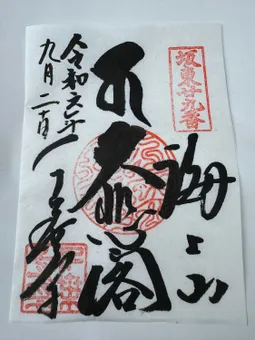 坂東廿九番
海上山
大悲閣
千葉寺
令和六年
九月二十日